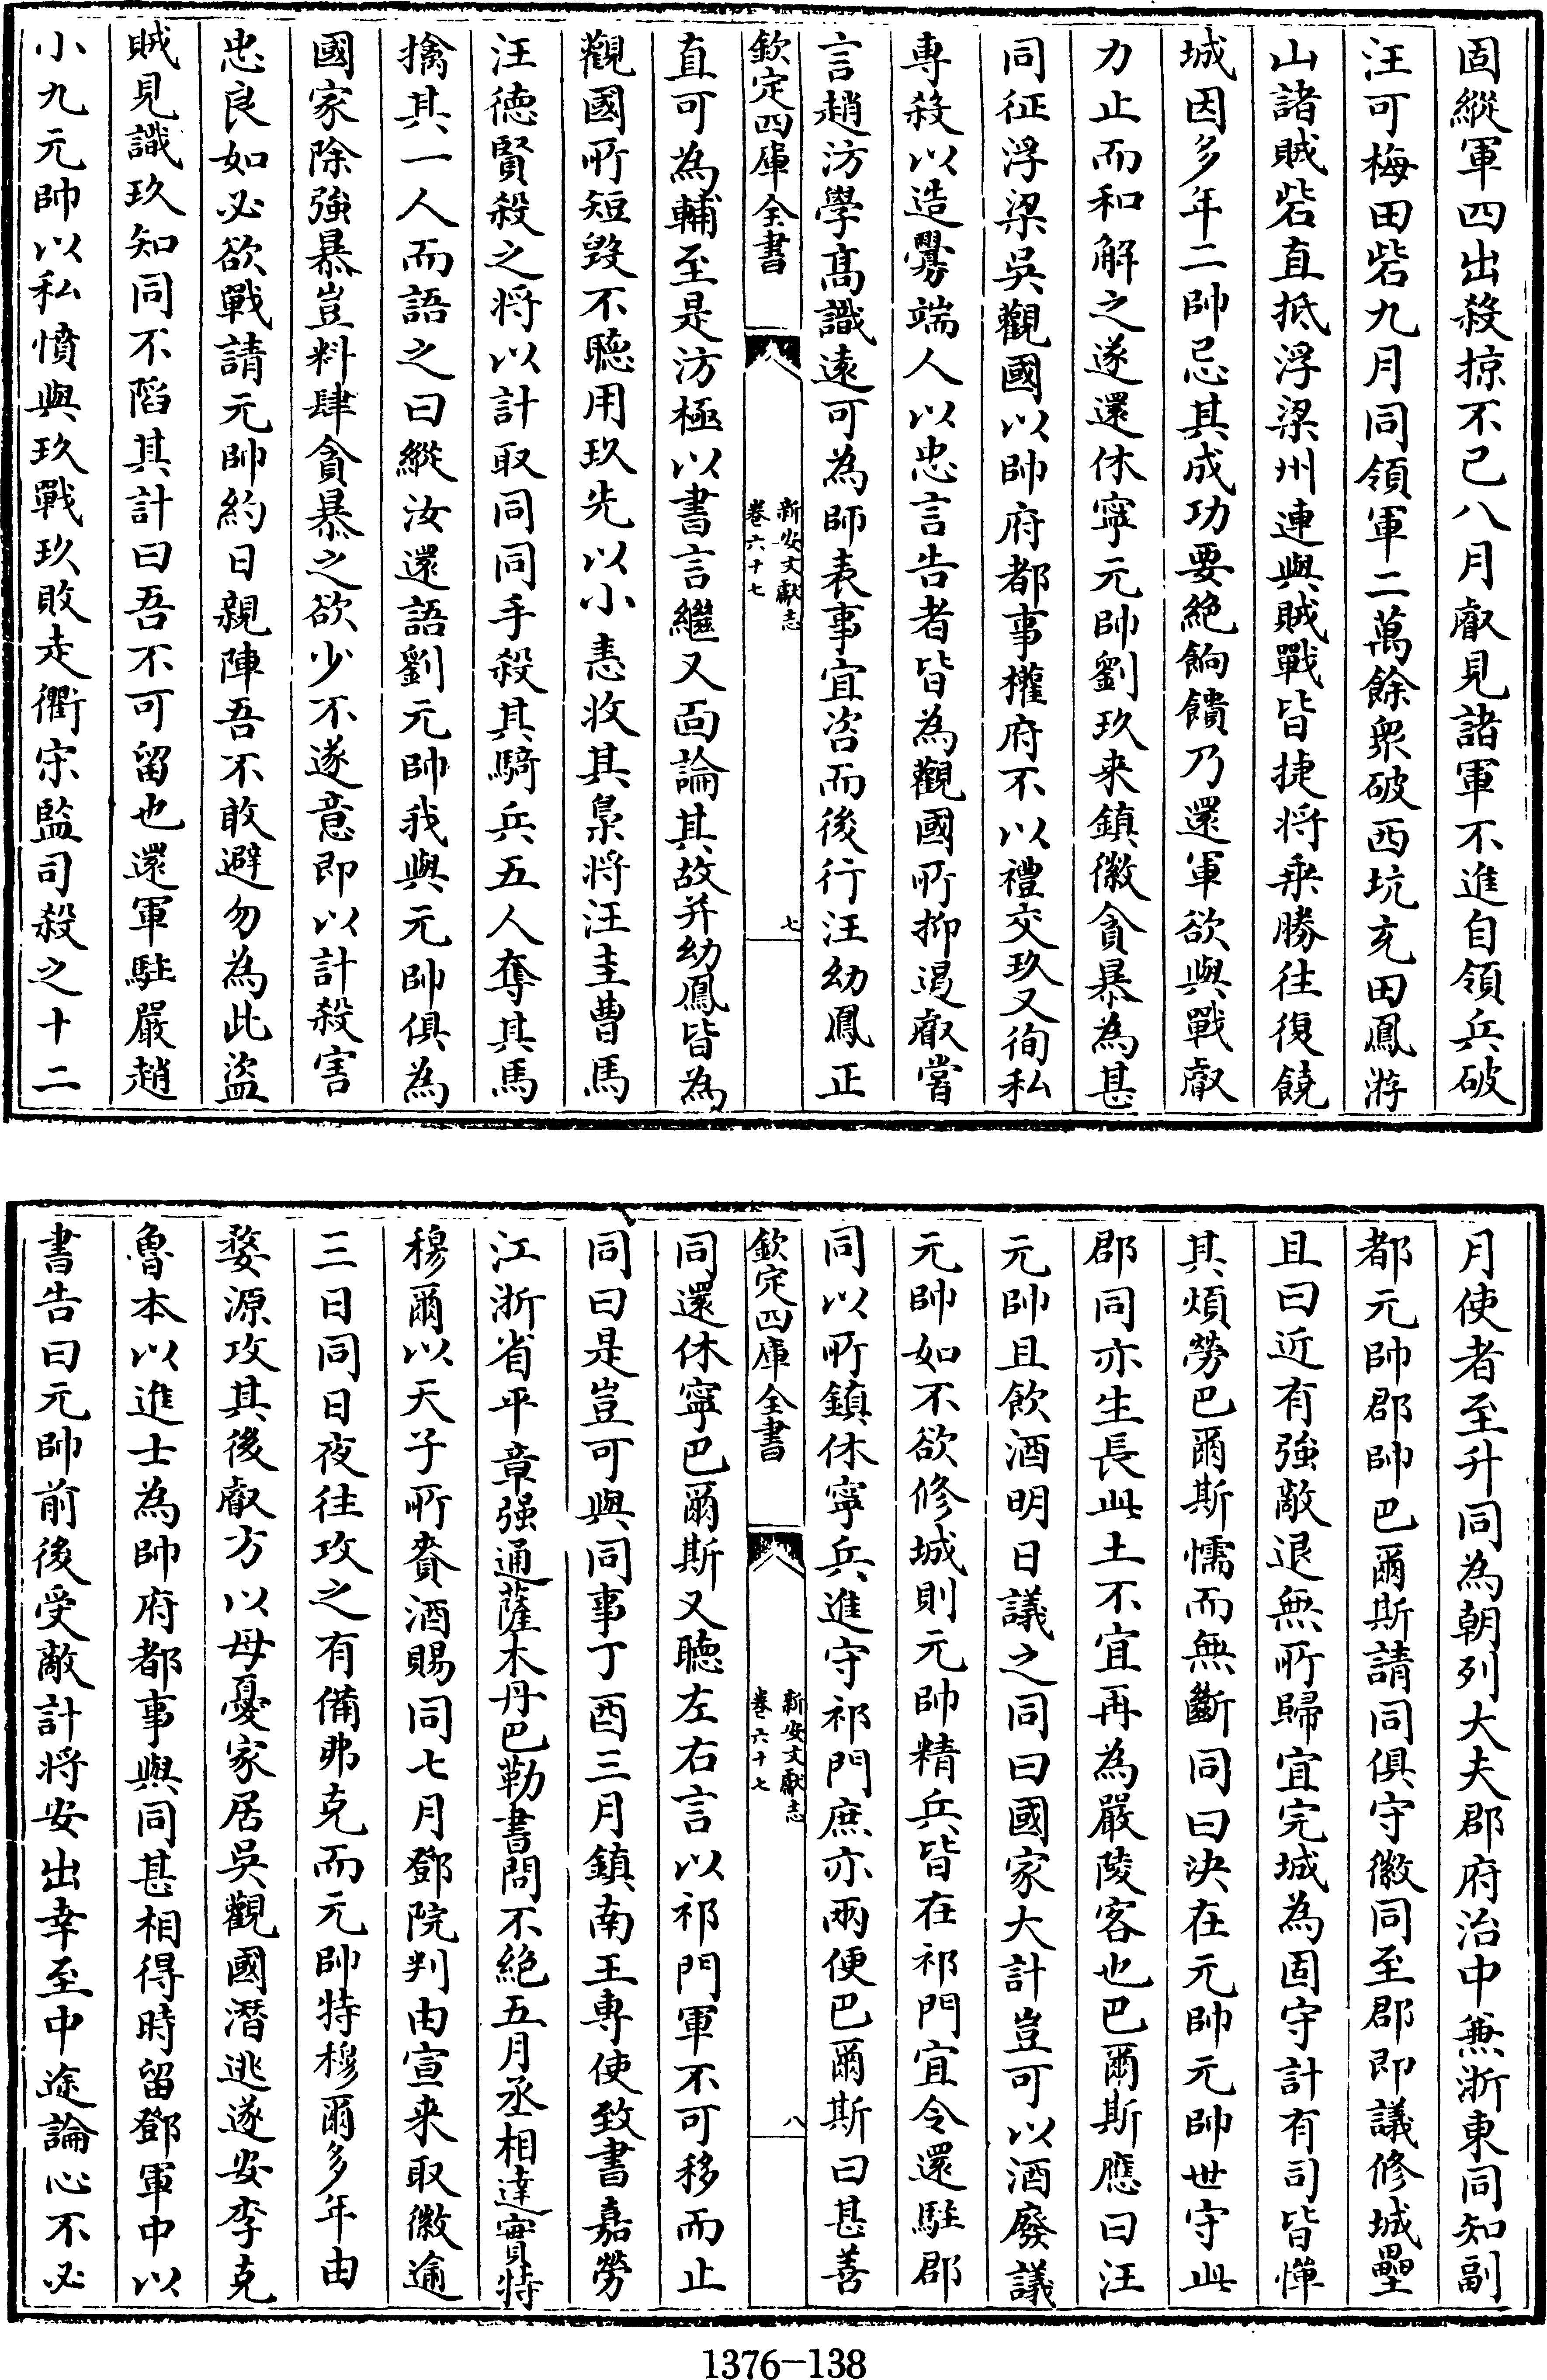 固縱軍四出殺掠不已八月叡見諸軍不進自領兵破
汪可梅田砦九月同領軍二萬餘衆破西坑克田鳳游
山諸賊砦直抵浮梁州連與賊戰皆捷将乘勝往復饒
城因多年二帥忌其成功要絶餉饋乃還軍欲與戰叡
力止而和解之遂還休寧元帥劉玖来鎮徽貪暴為甚
同征浮梁吳觀國以帥府都事權府不以禮交玖又徇私
専殺以造釁端人以忠言告者皆為觀國所抑遏叡嘗
言趙汸學髙識遠可為師表事宜咨而後行汪幼鳳正
欽定四庫全書
新安文獻志
卷六十七
七
直可為輔至是汸極以書言繼又面論其故并幼鳳皆為
觀國所短毁不聽用玖先以小恚收其梟将汪圭曹馬
汪德賢殺之将以計取同同手殺其騎兵五人奪其馬
擒其一人而語之曰縱汝還語劉元帥我與元帥俱為
國家除強暴豈料肆貪暴之欲少不遂意即以計殺害
忠良如必欲戰請元帥約日親陣吾不敢避勿為此盜
賊見識玖知同不䧟其計曰吾不可留也還軍駐嚴趙
小九元帥以私憤與玖戰玖敗走衢宋監司殺之十二
月使者至升同為朝列大夫郡府治中兼浙東同知副
都元帥郡帥巴爾斯請同俱守徽同至郡即議修城壘
且曰近有強敵退無所歸宜完城為固守計有司皆憚
其煩勞巴爾斯懦而無斷同曰決在元帥元帥世守此
郡同亦生長此土不宜再為嚴陵客也巴爾斯應曰汪
元帥且飲酒明日議之同曰國家大計豈可以酒廢議
元帥如不欲修城則元帥精兵皆在祁門宜令還駐郡
同以所鎮休寧兵進守祁門庶亦兩便巴爾斯曰甚善
欽定四庫全書
新安文獻志
卷六十七
八
同還休寧巴爾斯又聽左右言以祁門軍不可移而止
同曰是豈可與同事丁酉三月鎮南王専使致書嘉勞
江浙省平章强通薩木丹巴勒書問不絶五月丞相達實特
穆爾以天子所賚酒賜同七月鄧院判由宣来取徽逾
三日同日夜往攻之有備弗克而元帥特穆爾多年由
婺源攻其後叡方以母憂家居吳觀國潛逃遂安李克
魯本以進士為帥府都事與同甚相得時留鄧軍中以
書告曰元帥前後受敵計将安出幸至中途論心不必
1376-138